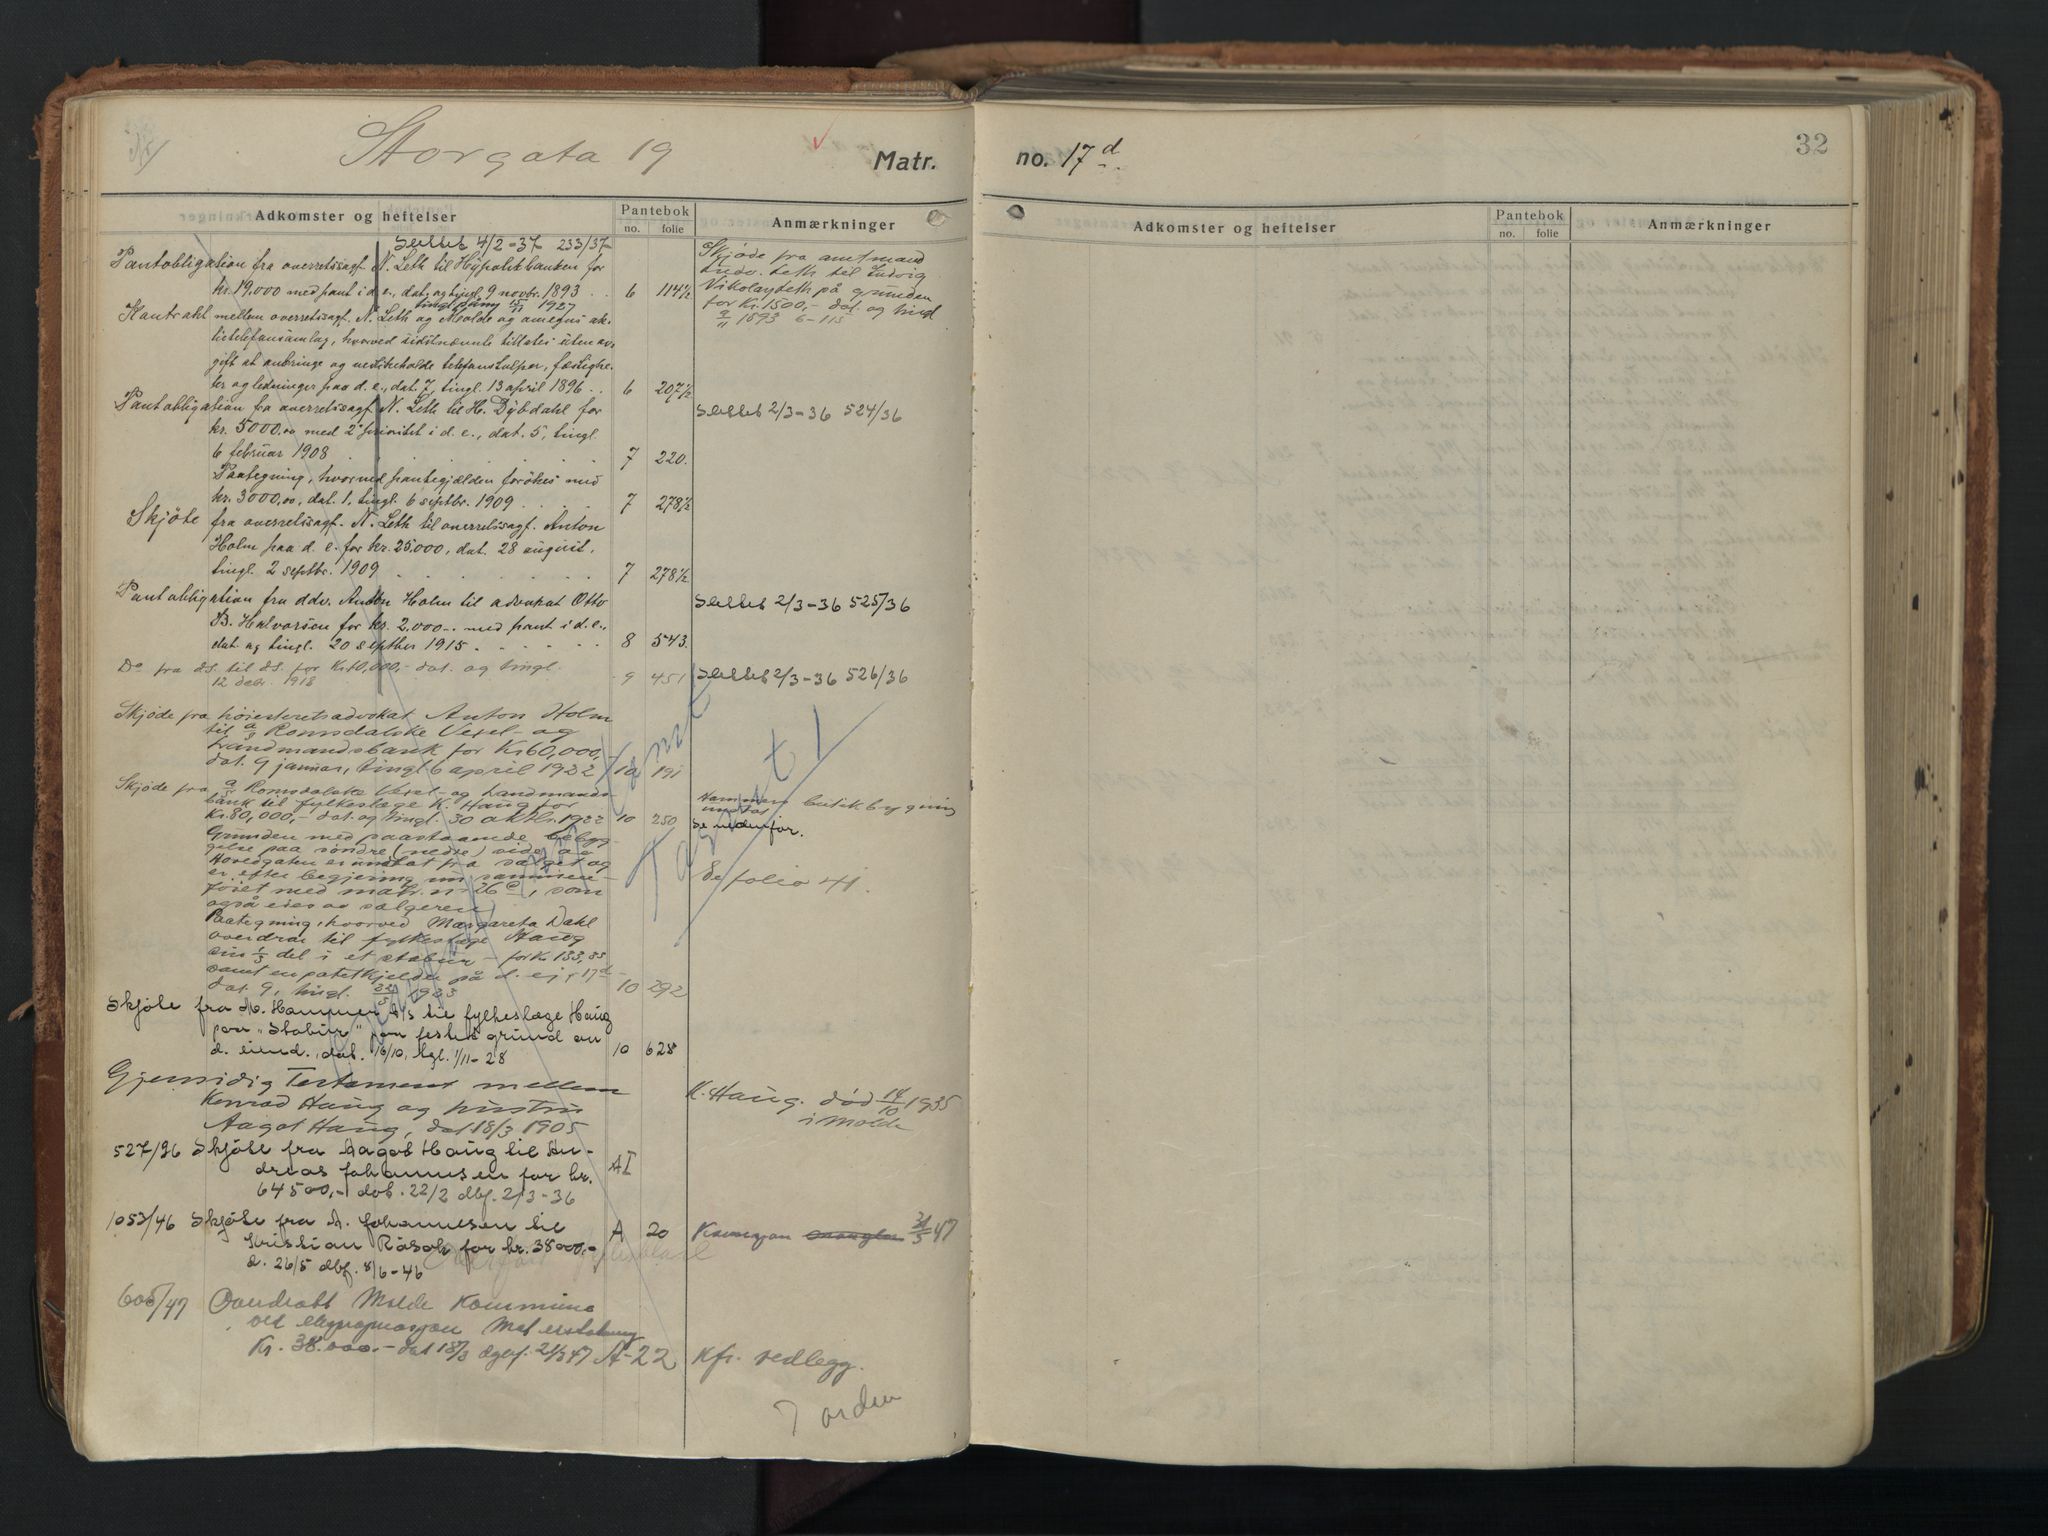 Storgata 19
Matr. no. 17 d
32
Adkomster og heftelser
Pantebok
no. folie
Anmærkninger
Adkomster og heftelser
Pantebok
no. folie
Anmærkninger
Slettet 4/2-37 233/37
Pantobligation fra overretssagf. N. Leth til Hypotekbanken for
kr. 19,000 med pant i d. e., dat. og tingl. 9 novbr. 1893 . . 6 114½
Skjøde fra amtmand
Ludv. Leth til Ludvig
Nikolay Leth på grunden
for Kr. 1500,- dat. og tingl
9/11 1893 6-115
1927
Kontrakt mellem overretssagf. N. Leth og Molde og omegns ak-
tietelefonsamlag, hvorved sidstnævnte tillates uten av-
gift at anbringe og vedlikeholde telefonstolper, fæstighe-
ter og ledninger paa d. e., dat. 7, tingl. 13 april 1896 . . 6 207½
Pantobligation fra overretssagf. N. Leth til H. Dybdahl for
kr. 5000,00 med 2' prioritet i d. e., dat. 5, tingl.
6 februar 1908 . . . . 7 220.
Slettet 2/3-36 524/36
Paategning, hvorved pantegjælden forökes med
kr. 3000,00, dat. 1, tingl. 6 septbr. 1909 . . . . 7 278½
Skjöte fra overretssagf. N. Leth til overretssagf. Anton
Holm paa d. e. for kr. 25,000, dat. 28 august,
tingl. 2 septbr. 1909 . . . . 7 278½
Pantobligation fra adv. Anton Holm til advokat Otto
B. Halvorsen for kr. 2,000.- med pant i d. e.,
dat. og tingl. 20 septbr 1915 . . . . 8 543.
Slettet 2/3-36 525/36
Do fra ds. til ds. for Kr. 10,000,- dat. og tingl.
12 debr. 1918 9 451
Slettet 2/3-36 526/36
Skjøde fra høiesteretsadvokat Anton Holm
til a/s Romsdalske Vexel- og
Landmandsbank for Kr 60,000,
dat. 9 januar, tingl 6 april 1922 10 191
Skjøde fra a/s Romsdalske Vexel- og Landmands-
bank til fylkeslæge K. Haug for
Kr. 80,000,- dat. og tingl. 30 oktbr. 1922 10 250
Hammers butikbygning
undtat
Se nedenfor.
Grunden med paastaaende bebyg-
gelse paa søndre (nedre) side av
Hovedgaten er undtat fra salget og
er efter begjering nu sammen-
føiet med matr. no 26 c, som
også eies av sælgeren
Se folio 41.
Paategning, hvorved Margareta Dahl
overdrar til fylkeslæge Haug
sin 1/3 del i et stabur - for Kr. 133,33
samt en potetkjelder på d. ei, 17 d -
dat. 9, tingl. 22/3 1923 10 292
Takst!
Skjöte fra M. Hammer A/s til fylkeslæge Haug
paa "Stabur" paa festet grund av
d. eiend., dat. 16/10, tgl. 1/11-28 10 628
Gjensidig Testament mellem
Konrad Haug og hustru
Aagot Haug, dat 18/3 1905
K. Haug. død 14/10 1935
i Molde
527/36 Skjöte fra Aagot Haug til An-
dreas Johannesen for kr.
64500,- dat. 22/2 dbf. 2/3-36 A I
1053/46 Skjöte fra A. Johannesen til
Kristian Råsok for kr. 38000,-
d. 26/5 dbf. 8/6-46 A 20
47
605/47 Overdratt Molde Kommune
ved ekspropriasjon mot erstatning
Kr. 38.000.- dat 18/3 dgbf. 21/3 47 A-22
Kfr. vedlegg.
I orden